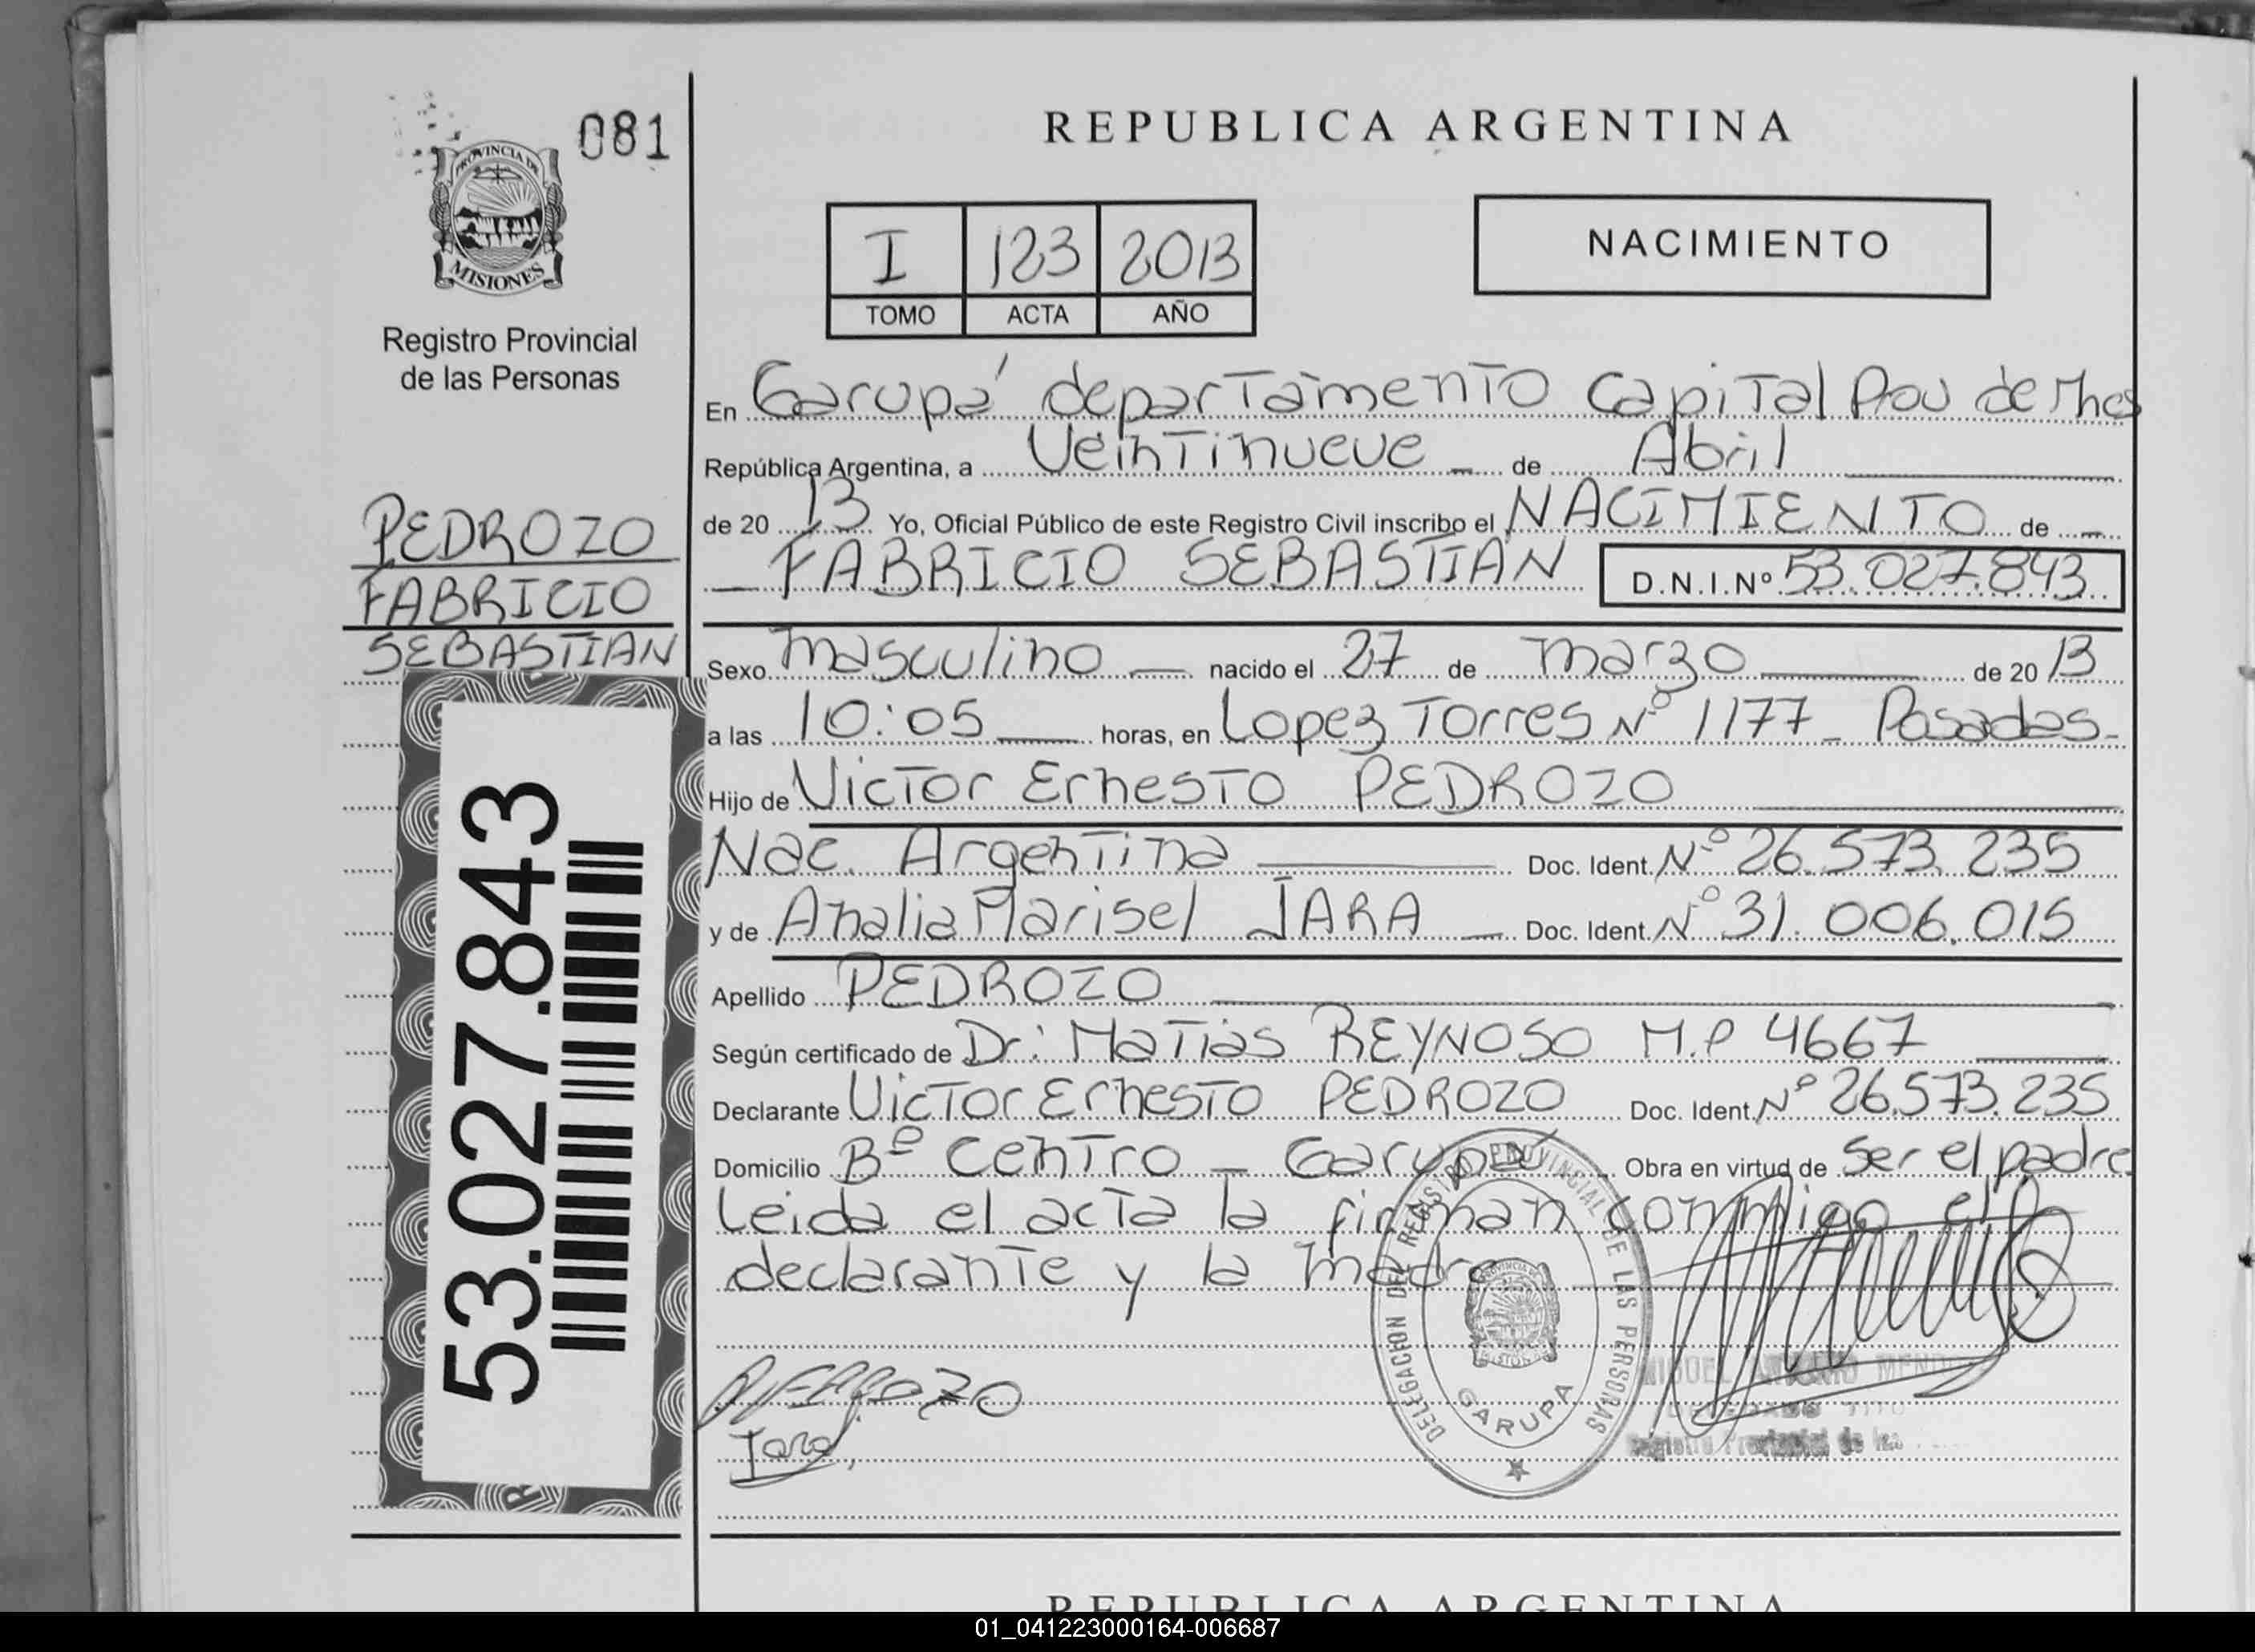 081
PROVINCIA DE
MISIONES
Registro Provincial
de las Personas
PEDROZO
FABRICIO
SEBASTIAN
53.027.843
REPUBLICA ARGENTINA
I 123 2013
TOMO ACTA AÑO
NACIMIENTO
En Garupá departamento Capital Prov de Mnes
República Argentina, a Veintinueve de Abril
de 20 13 Yo, Oficial Público de este Registro Civil inscribo el NACIMIENTO de
FABRICIO SEBASTIAN D.N.I.Nº 53.027.843
Sexo masculino nacido el 27 de marzo de 20 13
a las 10:05 horas, en Lopez Torres Nº 1177 - Posadas-
Hijo de Victor Ernesto PEDROZO
Nac. Argentina Doc. Ident. Nº 26.573.235
y de Analia Marisel JARA Doc. Ident. Nº 31.006.015
Apellido PEDROZO
Según certificado de Dr: Matias REYNOSO M.P 4667
Declarante Victor Ernesto PEDROZO Doc. Ident. Nº 26.573.235
Domicilio Bº Centro - Garupá Obra en virtud de ser el padre
Leida el acta la firman conmigo el
declarante y la madre
DELEGACION DEL REGISTRO PROVINCIAL DE LAS PERSONAS
GARUPA
MIGUEL ANTONIO
Registro Provincial de las
Jara
REPUBLICA ARGENTINA
01_041223000164-006687